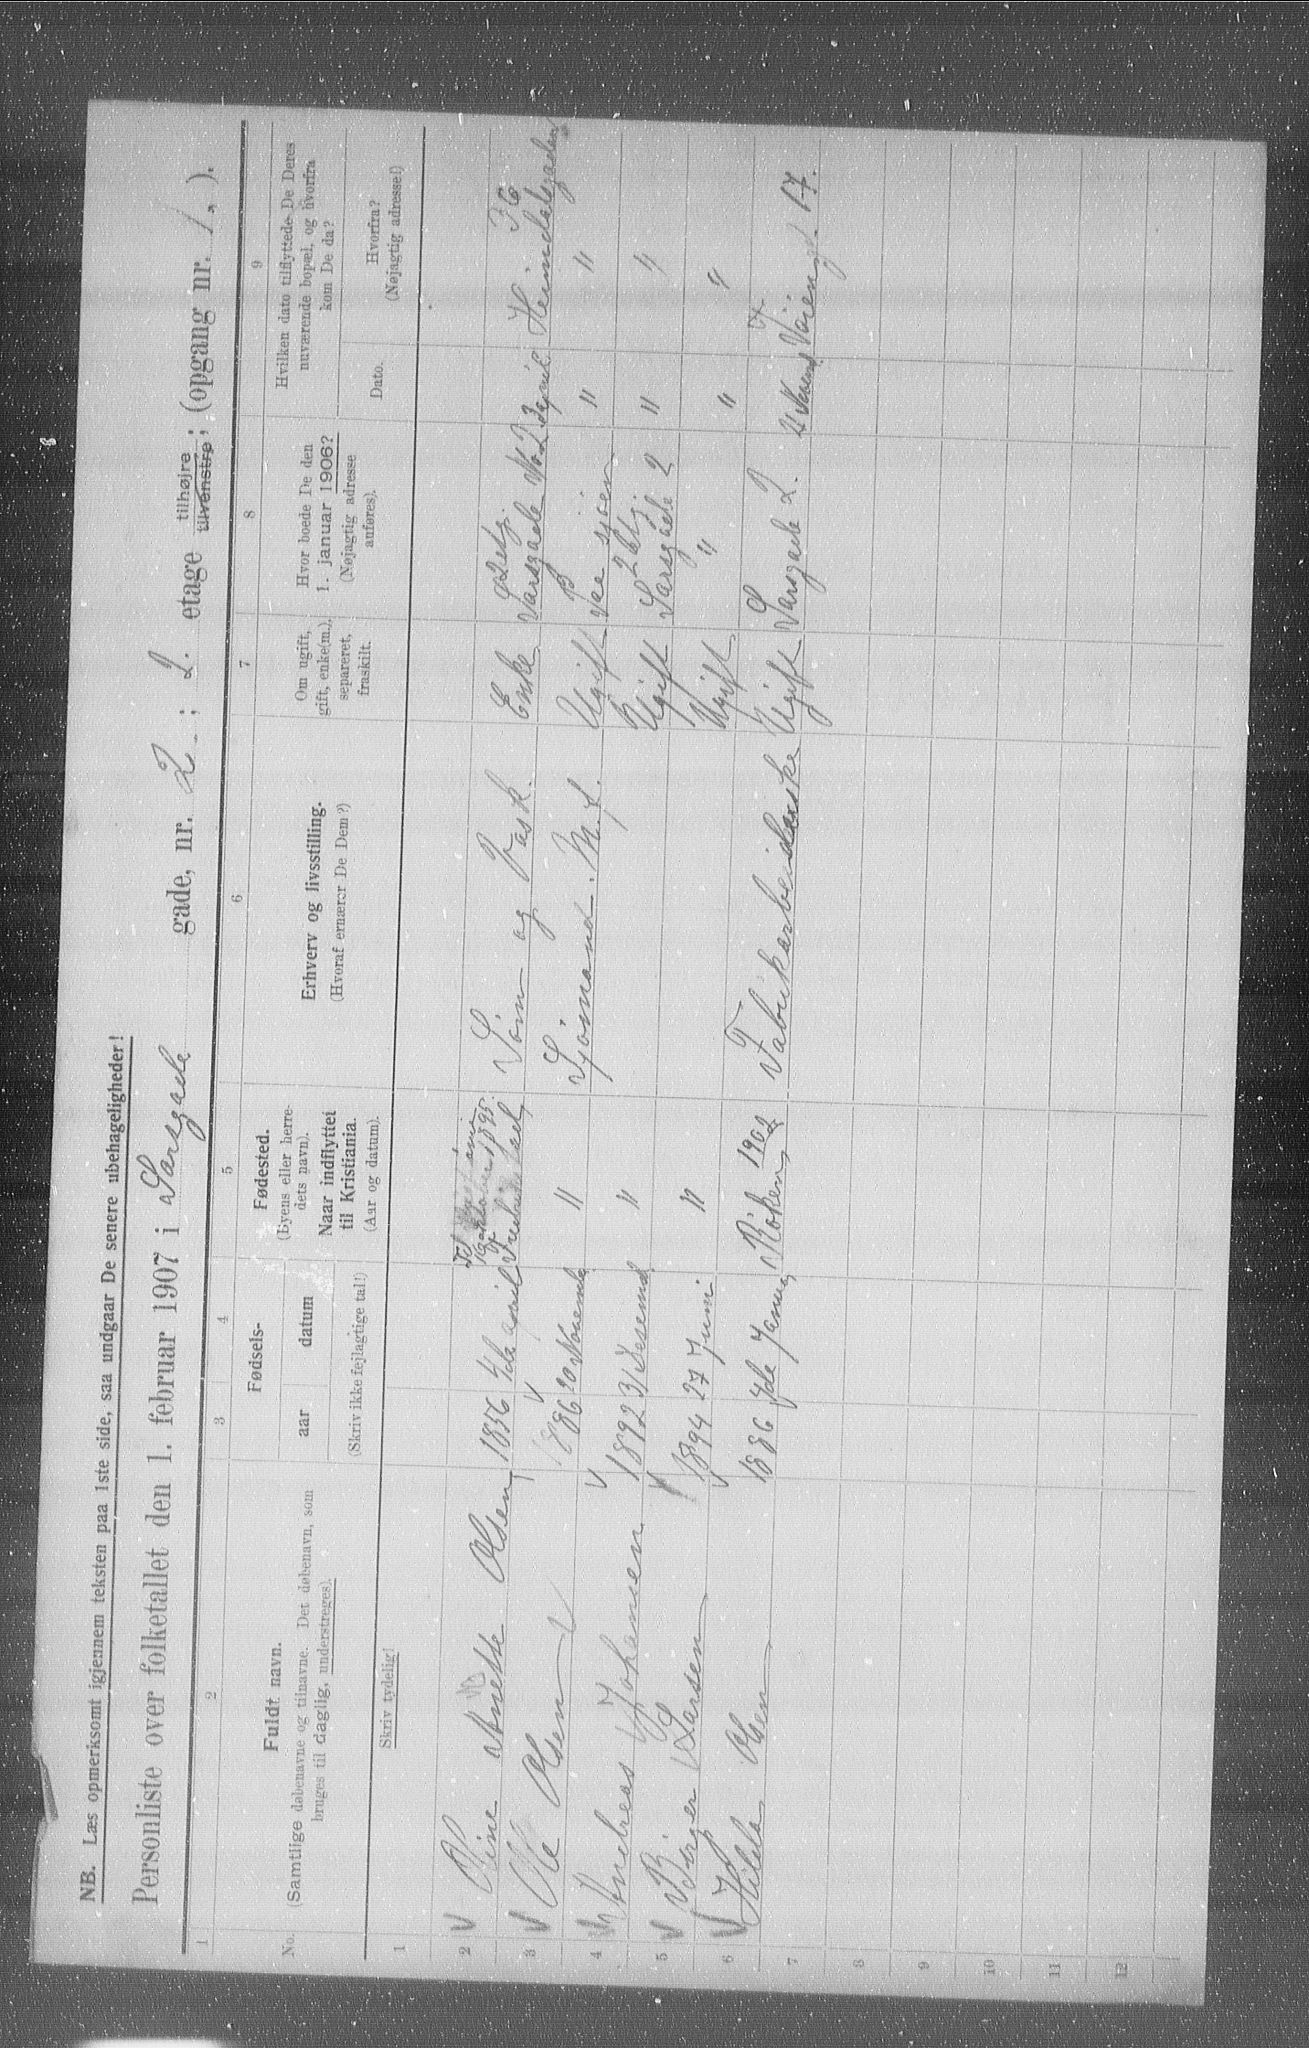 NB. Læs opmerksomt igjennem teksten paa 1ste side, saa undgaar De senere ubehageligheder!
Personliste over folketallet den 1. februar 1907 i Sarsgade gade, nr. 2 ; 2. etage tilhøjre tilvenstre ; (opgang nr. 1, ).
1 2 3 4 5 6 7 8 9
No.
Fuldt navn.
(Samtlige døbenavne og tilnavne. Det døbenavn, som
bruges til daglig, understreges).
Skriv tydelig!
Fødsels-
aar datum
(Skriv ikke fejlagtige tal!)
Fødested.
(Byens eller herre-
dets navn).
Naar indflyttet
til Kristiania.
(Aar og datum).
Erhverv og livsstilling.
(Hvoraf ernærer De Dem?)
Om ugift,
gift, enke(m.),
separeret,
fraskilt.
Hvor boede De den
1. januar 1906?
(Nøjagtig adresse
anføres).
Hvilken dato tilflyttede De Deres
nuværende bopæl, og hvorfra
kom De da?
Dato.
Hvorfra?
(Nøjagtig adresse!)
1
2 Oline Anette Olsen 1856 4de april Fredrikstad Søm og Vask. Enke Sarsgade No 2 April Heimdalsgaden 36
3 Ole Olsen 1886 20 Novemb " Sjømand. Ugift paa sjøen " "
4 Andreas Johansen 1892 31 Desemb " Ugift Sarsgade 2 " "
5 Birger Larsen 1894 27 Juni " Ugift " " "
6 Hilda Olsen 1886 Januar Røken 1902 Fabrikarbeiderske Ugift Sarsgade 2. 17.
7
8
9
10
11
12